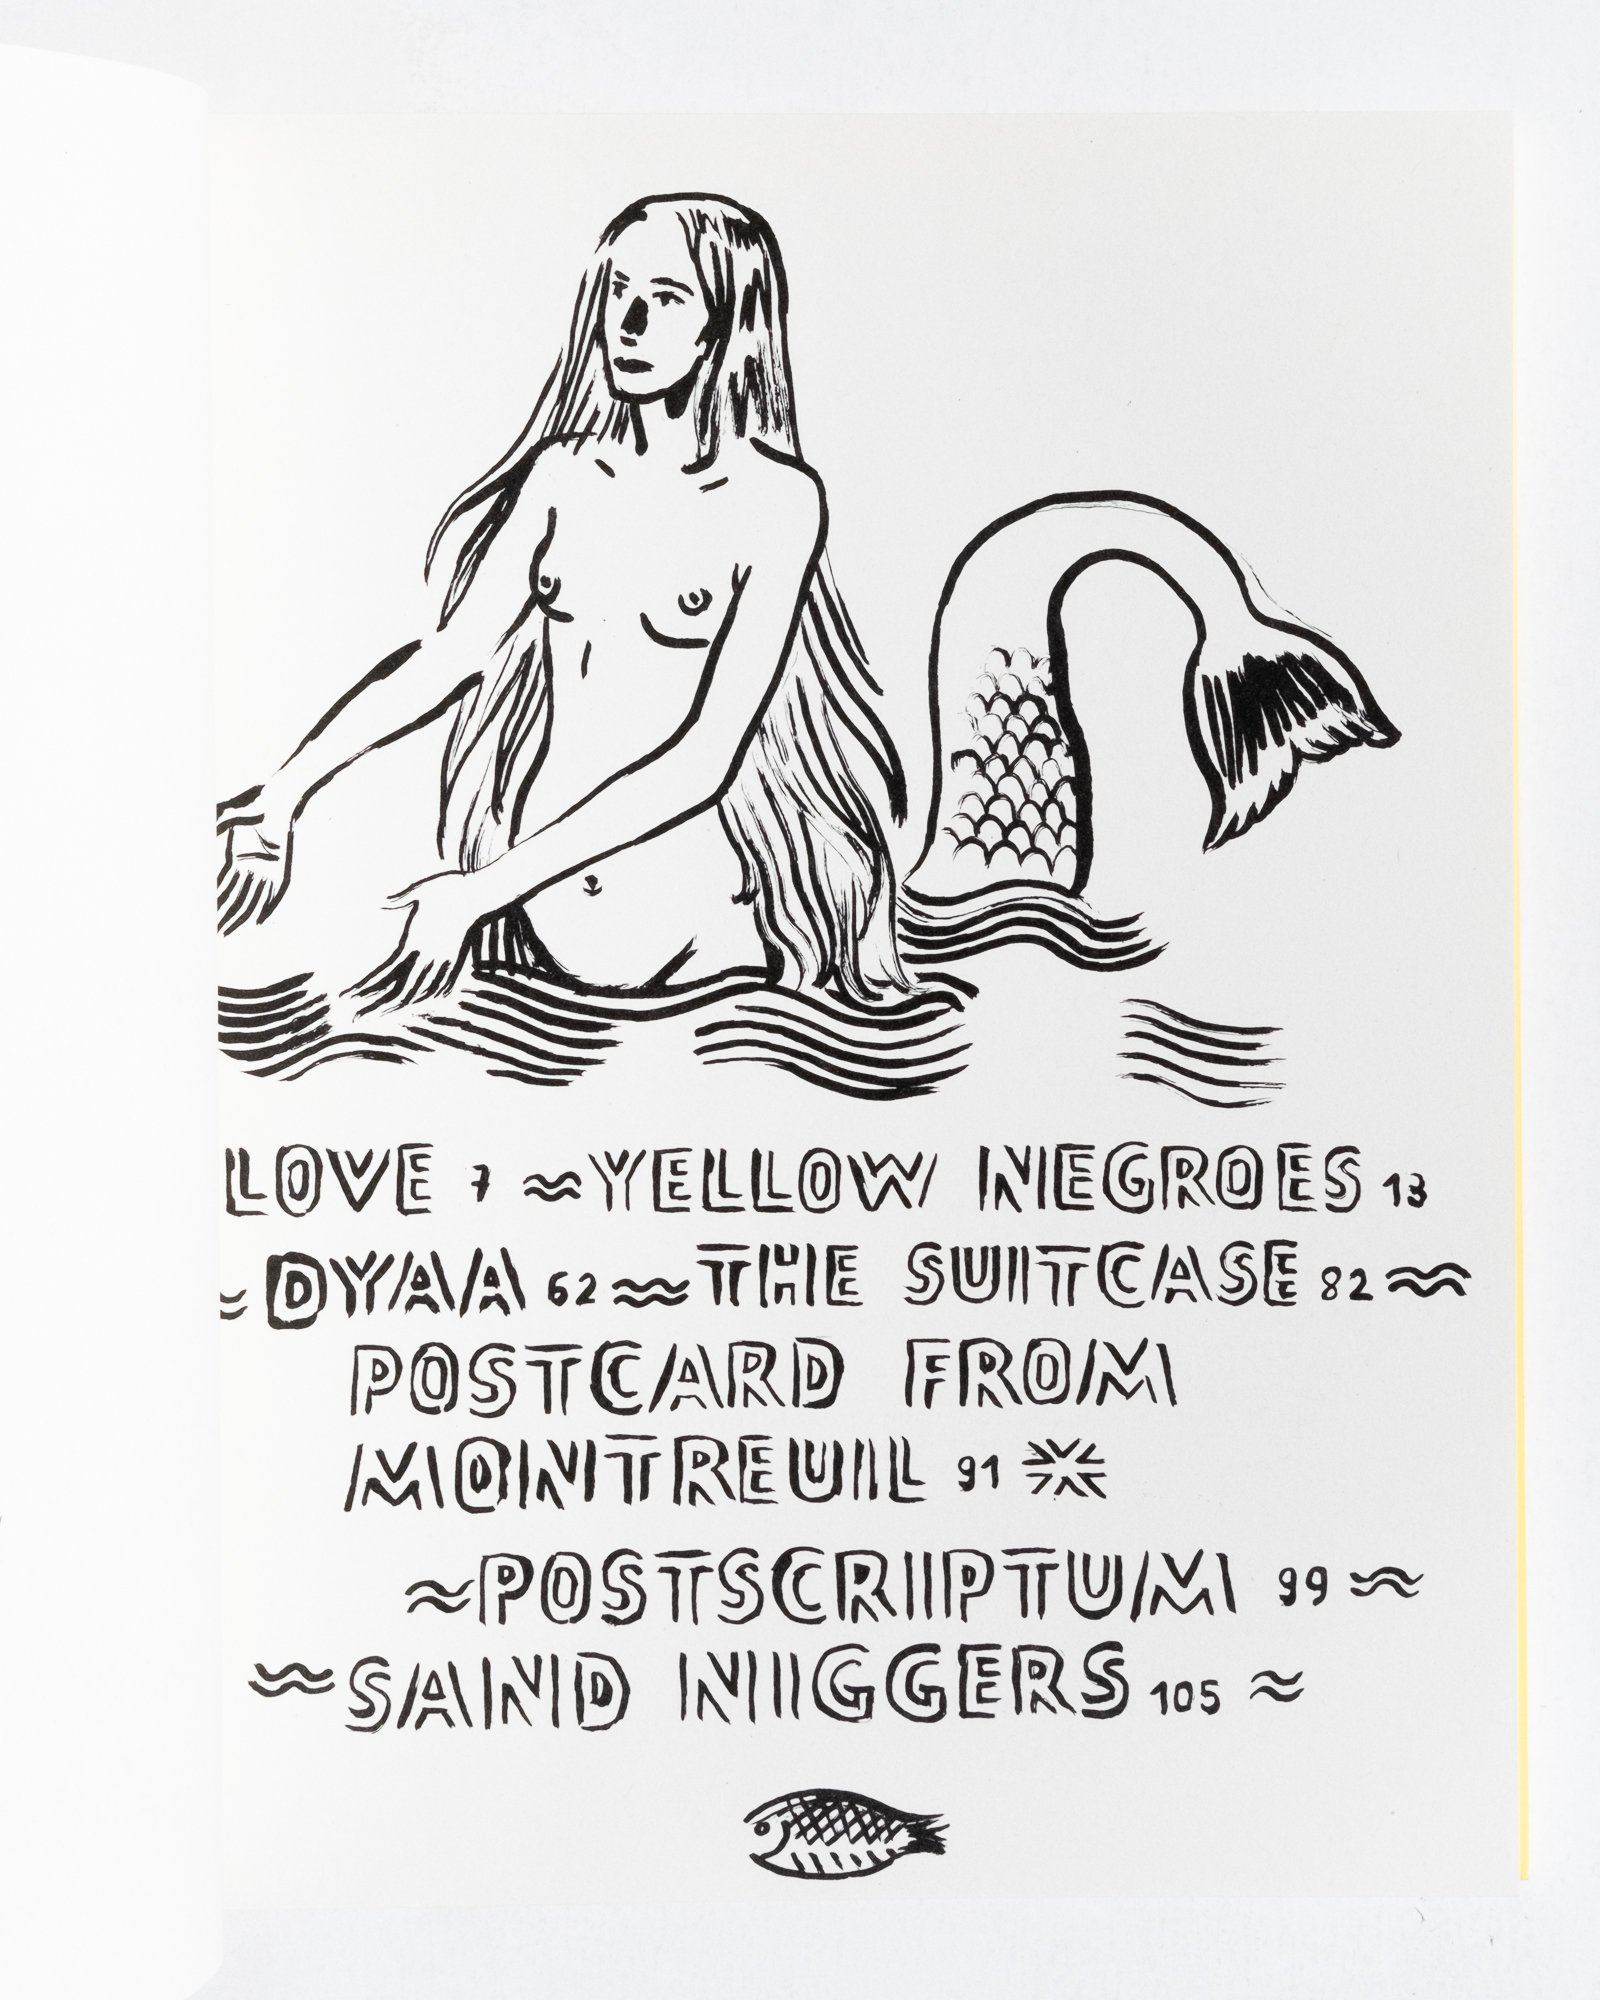 LOVE 7 ≈ YELLOW NEGROES 13
≈ DYAA 62 ≈ THE SUITCASE 82 ≈
POSTCARD FROM
MONTREUIL 91
≈ POSTSCRIPTUM 99 ≈
≈ SAND NIGGERS 105 ≈